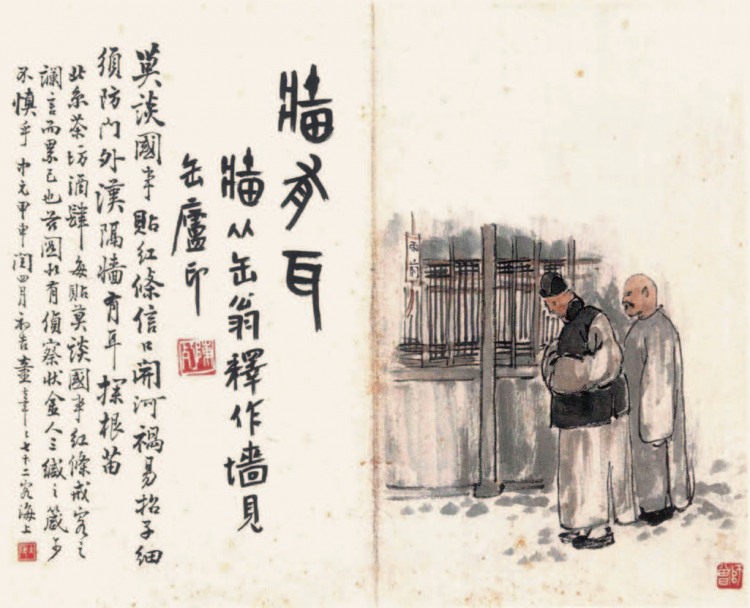 牆有耳
牆从缶翁釋作墻見
缶廬印
莫談國事貼紅條信口開河禍易招子細
須防門外漢隔牆有耳探根苗
北京茶坊酒肆每貼莫談國事紅條戒客之
讕言而累己也圖有偵察狀金人三緘之箴可
不慎乎 中元甲申閏四月初吉童七十二客海上
雨前
師曾